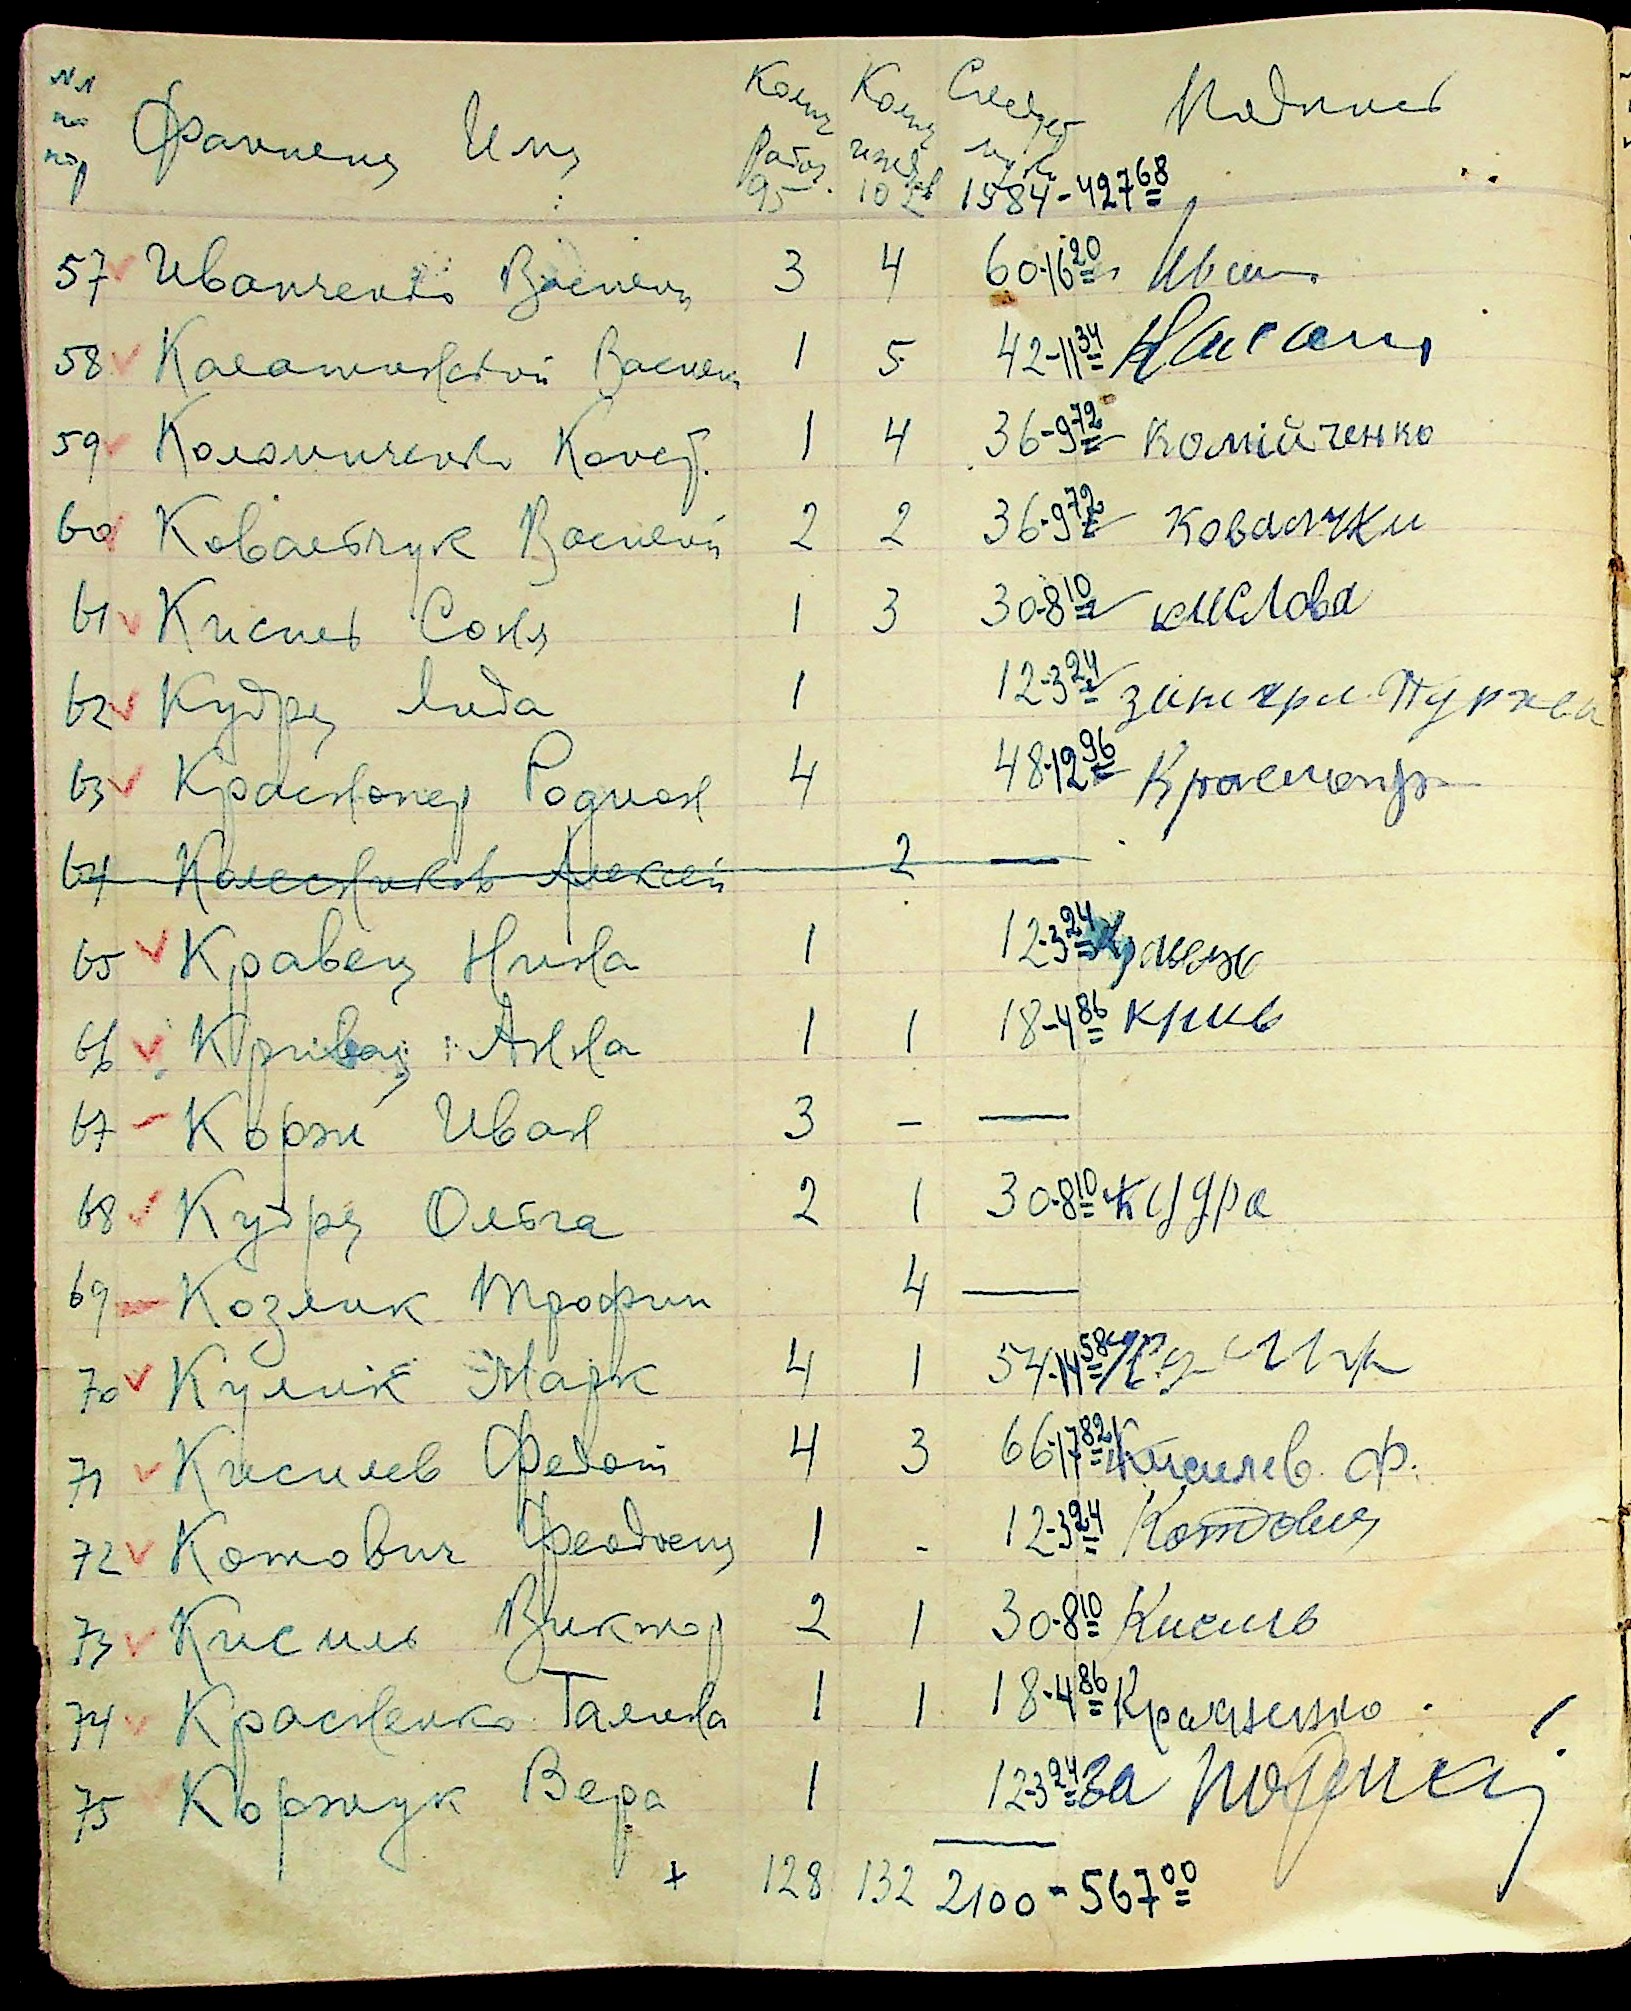 №№ по пор Фамилия Имя Колич работ. Колич иждев Следует муки Подпись
95 102 1584-427 68
57 Иванченко Василий 3 4 60-16 20 Иван
58 Василий 1 5 42-11 34
59 Коломиченко Конст. 1 4 36-9 72 Комійченко
60 Ковальчук Василий 2 2 36-9 72
61 Кисиль Соня 1 3 30-8 10 кислова
62 Кудря Лида 1 12-3 24
63 Краснопер Родион 4 48-12 96 Краснопер
64 Колесников Алексей 2 —
65 Кравец Нина 1 12-3 24
66 Кривец Анна 1 1 18-4 86 крив
67 Корж Иван 3 - —
68 Кудря Ольга 2 1 30-8 10 Кудра
69 Козлик Трофим 4 —
70 Кулик Марк 4 1 54-14 58
71 Кисилев Федот 4 3 66-17 82 Кисилев. Ф.
72 Котович Феодосий 1 - 12-3 24 Котович
73 Кисиль Виктор 2 1 30-8 10 Кисиль
74 Красненко Галина 1 1 18-4 86
75 Коржук Вера 1 12-3 24 За
+ 128 132 2100-567 00